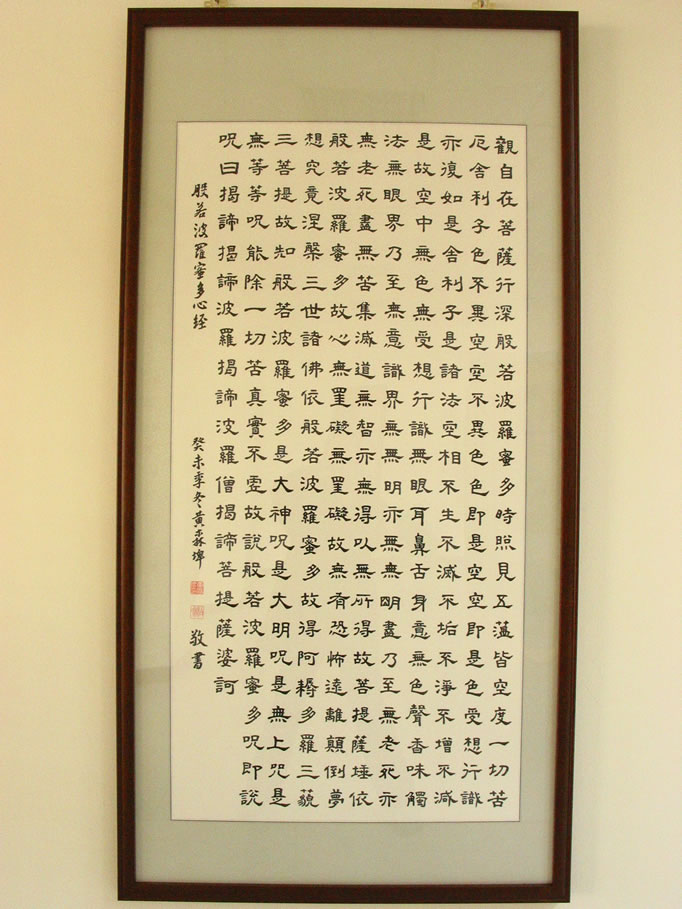 觀自在菩薩行深般若波羅蜜多時照見五蘊皆空度一切苦
厄舍利子色不異空空不異色色即是空空即是色受想行識
亦復如是舍利子是諸法空相不生不滅不垢不淨不增不減
是故空中無色無受想行識無眼耳鼻舌身意無色聲香味觸
法無眼界乃至無意識界無無明亦無無明盡乃至無老死亦
無老死盡無苦集滅道無智亦無得以無所得故菩提薩埵依
般若波羅蜜多故心無罣礙無罣礙故無有恐怖遠離顛倒夢
想究竟涅槃三世諸佛依般若波羅蜜多故得阿耨多羅三藐
三菩提故知般若波羅蜜多是大神呪是大明呪是無上咒是
無等等呪能除一切苦真實不虛故說般若波羅蜜多呪即說
呪曰揭諦揭諦波羅揭諦波羅僧揭諦菩提薩婆訶
般若波羅蜜多心经 癸未季冬黄森 敬書